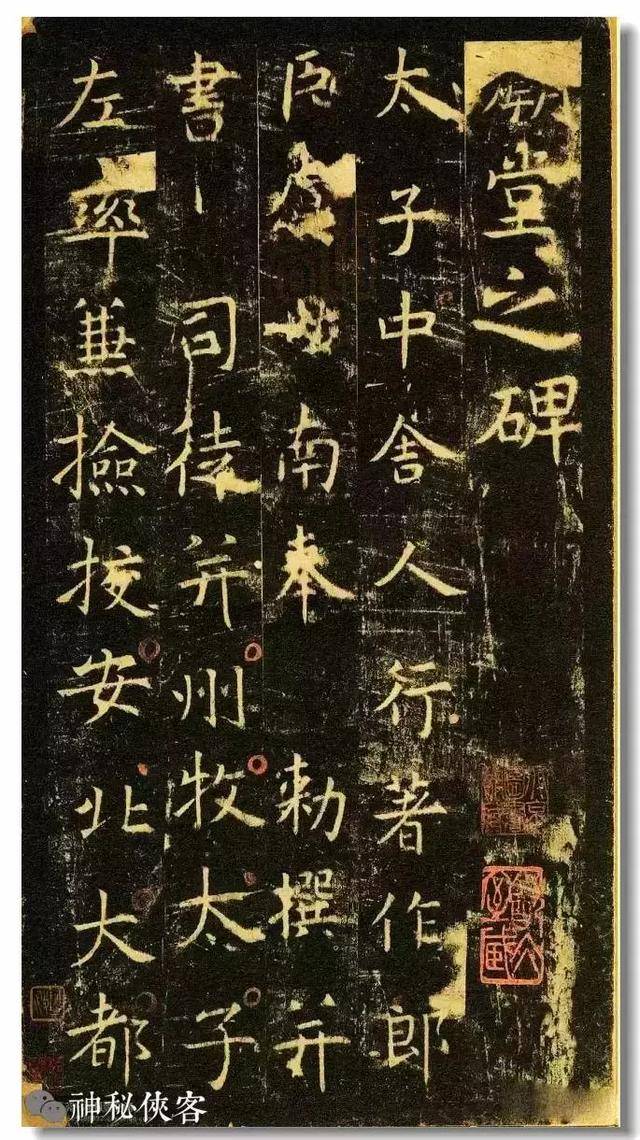 堂之碑
太子中舍人行著作郎
臣虞世南奉 勅撰并
書 司徒并州牧太子
左率兼撿挍安北大都
神秘俠客